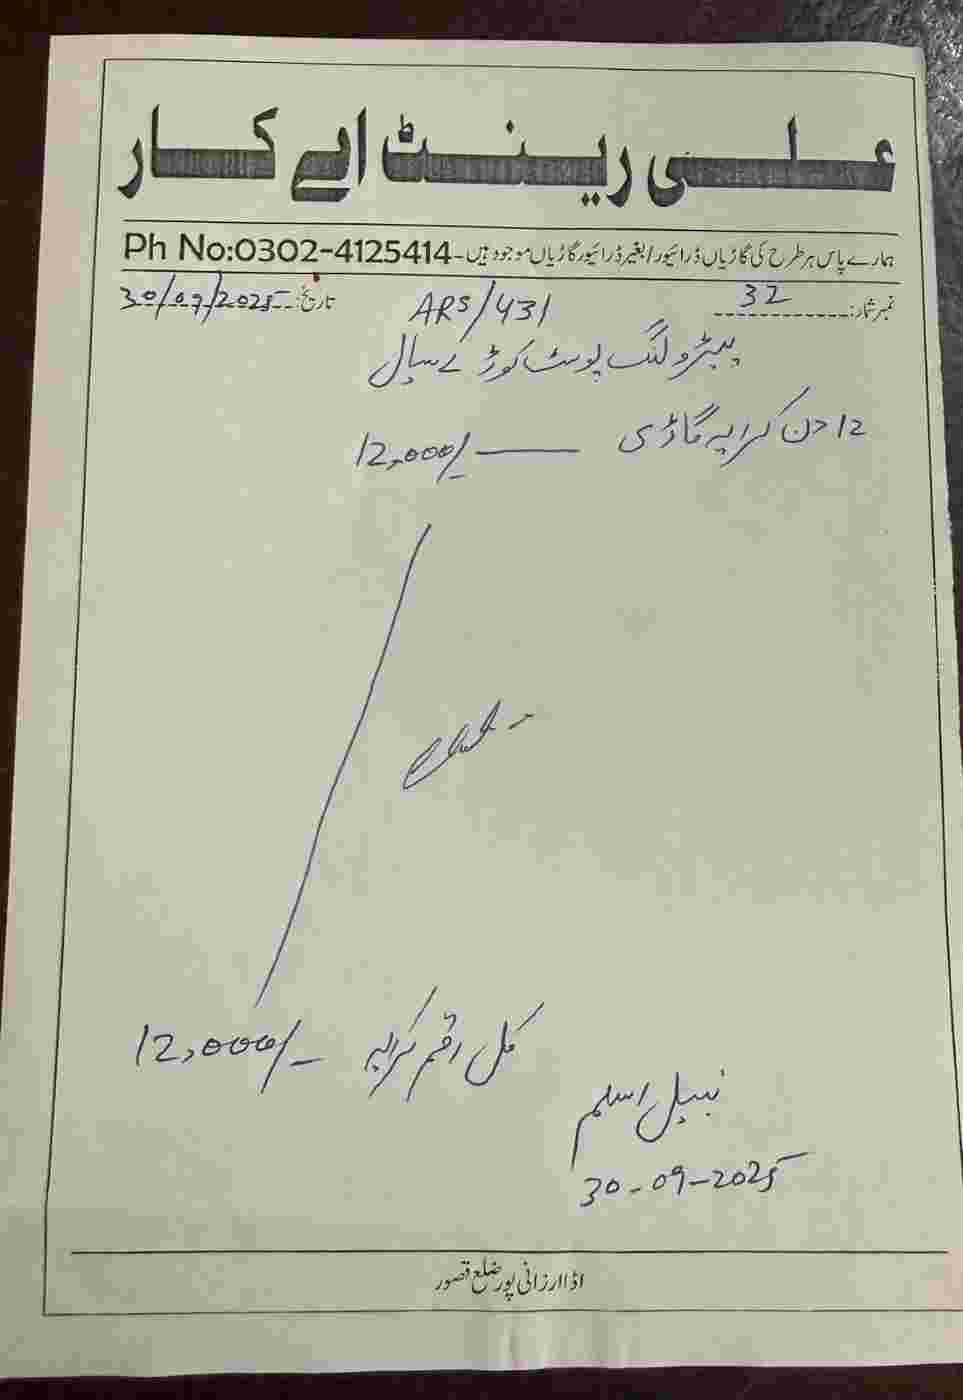 علی رینٹ اے کار
ہمارے پاس ہر طرح کی گاڑیاں ڈرائیور / بغیر ڈرائیور گاڑیاں موجود ہیں۔ Ph No:0302-4125414
نمبر شمار: 32 ARS/431 تاریخ: 30/09/2025
پیٹرولنگ پوسٹ کوڑے سیال
12 دن کرایہ گاڑی 12,000/-
کل رقم کرایہ 12,000/-
نبیل اسلم
30-09-2025
اڈا ارزانی پور ضلع قصور